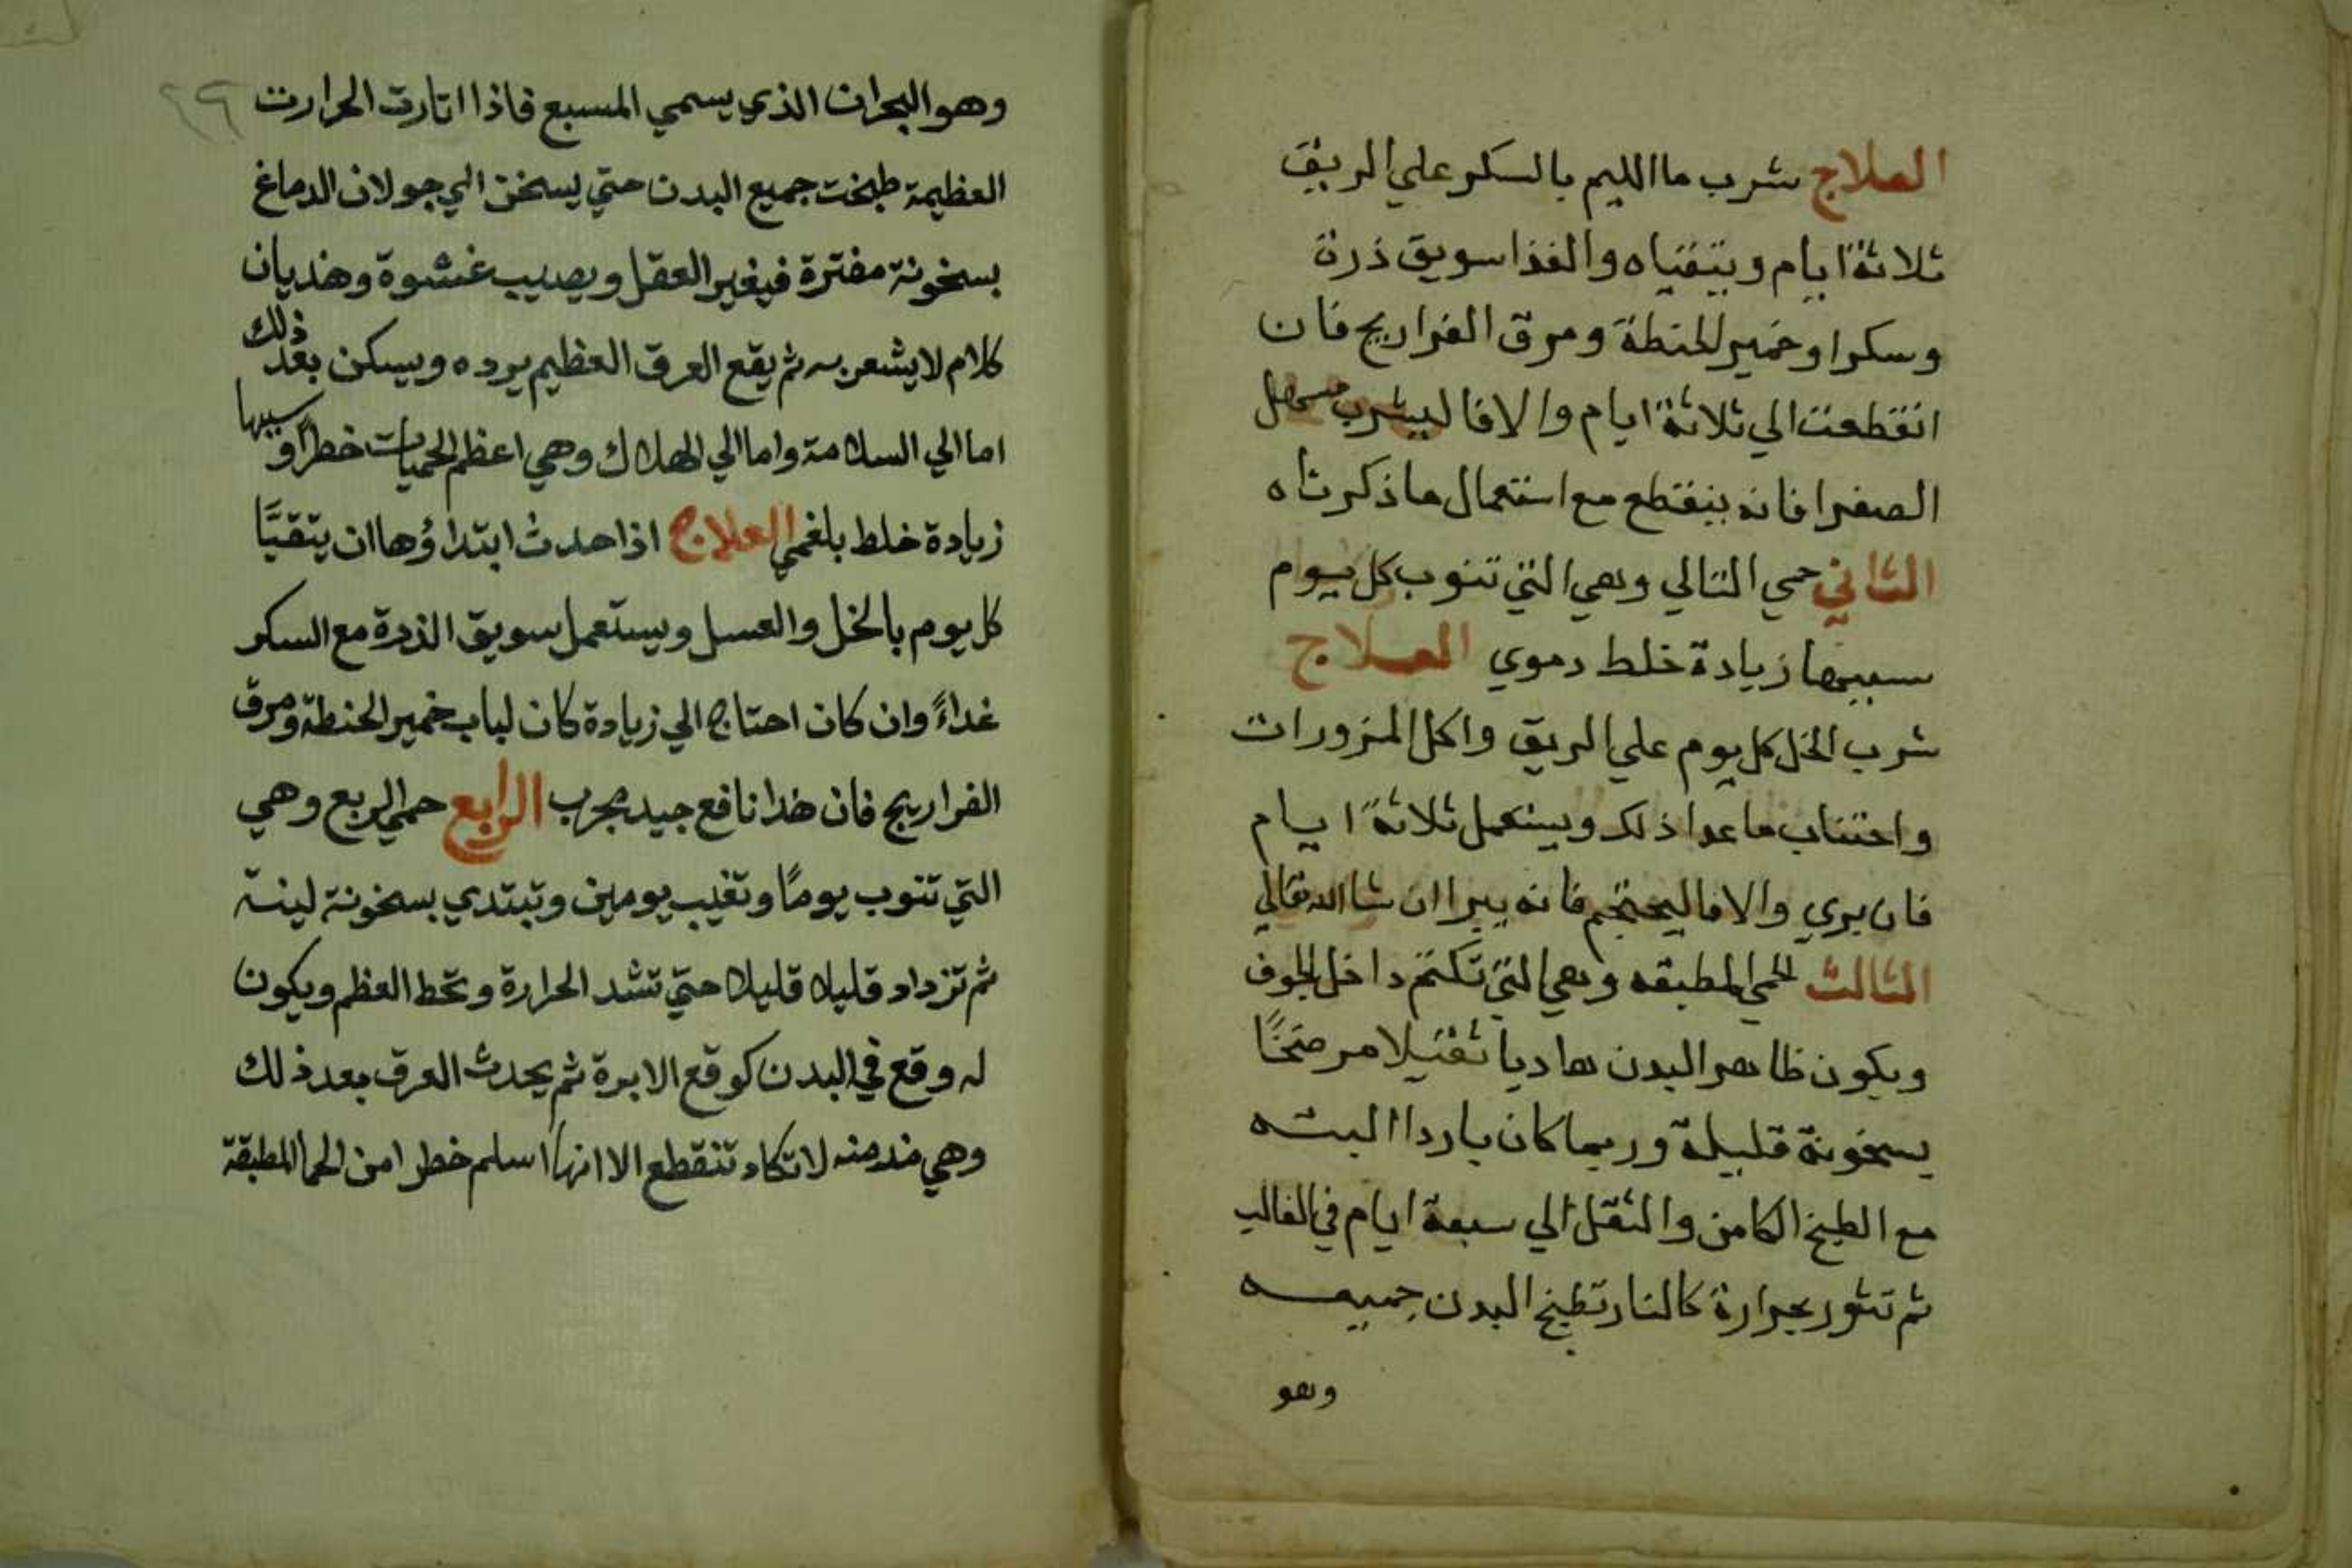 العلاج شرب ما الليم بالسكر علي الريق
ثلاثة ايام ويتقياه والغذا سويق ذرة
وسكرا وخمير الحنطة ومرق الفراريج فان
انقطعت الي ثلاثة ايام والا فاليشرب مسهل
الصفرا فانه ينقطع مع استعمال ما ذكرناه
الثاني حمي التالي وهي التي تنوب كل يوم
سببها زيادة خلط دموي العلاج
شرب الخل كل يوم علي الريق واكل المزورات
واجتناب ما عدا ذلك ويستعمل ثلاثة ايام
فان بري والا فاليحتجم فانه يبرا ان شا الله تعالي
الثالث الحمي المطبقه وهي التي تكتم داخل الجوف
ويكون ظاهر البدن هاديا ثقيلا مرضخا
بسخونة قليلة وربما كان باردا البته
مع الطبخ الكامن والثقل الي سبعة ايام في الغالب
ثم تثور بحرارة كالنار تطبخ البدن جميعه
وهو
٢٩
وهو البحران الذي يسمي المسبع فاذا اثارت الحرارت
العظيمة طبخت جميع البدن حتي يسخن الي جولان الدماغ
بسخونة مفترة فيغير العقل ويصيب غشوة وهذيان
كلام لا يشعر به ثم يقع العرق العظيم يرده ويسكن بعد ذلك
اما الي السلامة واما الي الهلاك وهي اعظم الحميات خطرا وسببها
زيادة خلط بلغمي العلاج اذا حدث ابتداؤها ان يتقيَّا
كل يوم بالخل والعسل ويستعمل سويق الذرة مع السكر
غداءً وان كان احتاج الي زيادة كان لباب خمير الحنطة ومرق
الفراريج فان هذا نافع جيد مجرب الرابع حمي الربع وهي
التي تنوب يومًا وتغيب يومين وتبتدي بسخونة لينة
ثم تزداد قليلا قليلا حتي تشد الحرارة وتحط العظم ويكون
له وقع في البدن كوقع الابرة ثم يحدث العرق بعد ذلك
وهي مزمنه لا تكاد تنقطع الا انها اسلم خطرا من الحما المطبقة